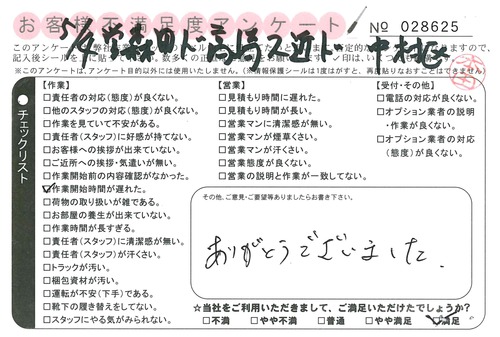 お客様不満足度アンケート
No 028625
【作業】
□責任者の対応(態度)が良くない。
□他のスタッフの対応(態度)が良くない。
□作業を見ていて不安がある。
□責任者(スタッフ)に好感が持てない。
□お客様への挨拶が出来ていない。
□ご近所への挨拶・気遣いが無い。
□作業開始前の内容確認がなかった。
☑作業開始時間が遅れた。
□荷物の取り扱いが雑である。
□お部屋の養生が出来ていない。
□作業時間が長すぎる。
□責任者(スタッフ)に清潔感が無い。
□責任者(スタッフ)が汗くさい。
□トラックが汚い。
□梱包資材が汚い。
□運転が不安(下手)である。
□靴下の履き替えをしてない。
□スタッフにやる気がみられない。
【営業】
□見積もり時間に遅れた。
□見積もり時間が長い。
□営業マンに清潔感が無い。
□営業マンが煙草くさい。
□営業マンが汗くさい。
□営業態度が良くない。
□営業の説明と作業が一致してない。
【受付・その他】
□電話の対応が良くない。
□オプション業者の説明
・作業が良くない。
□オプション業者の対応
(態度)が良くない。
チェックリスト
その他、ご意見・ご要望等ありましたらお書き下さい。
ありがとうございました.
☆当社をご利用いただきまして、ご満足いただけたでしょうか?
□不満 □やや不満 □普通 □やや満足 ☑満足